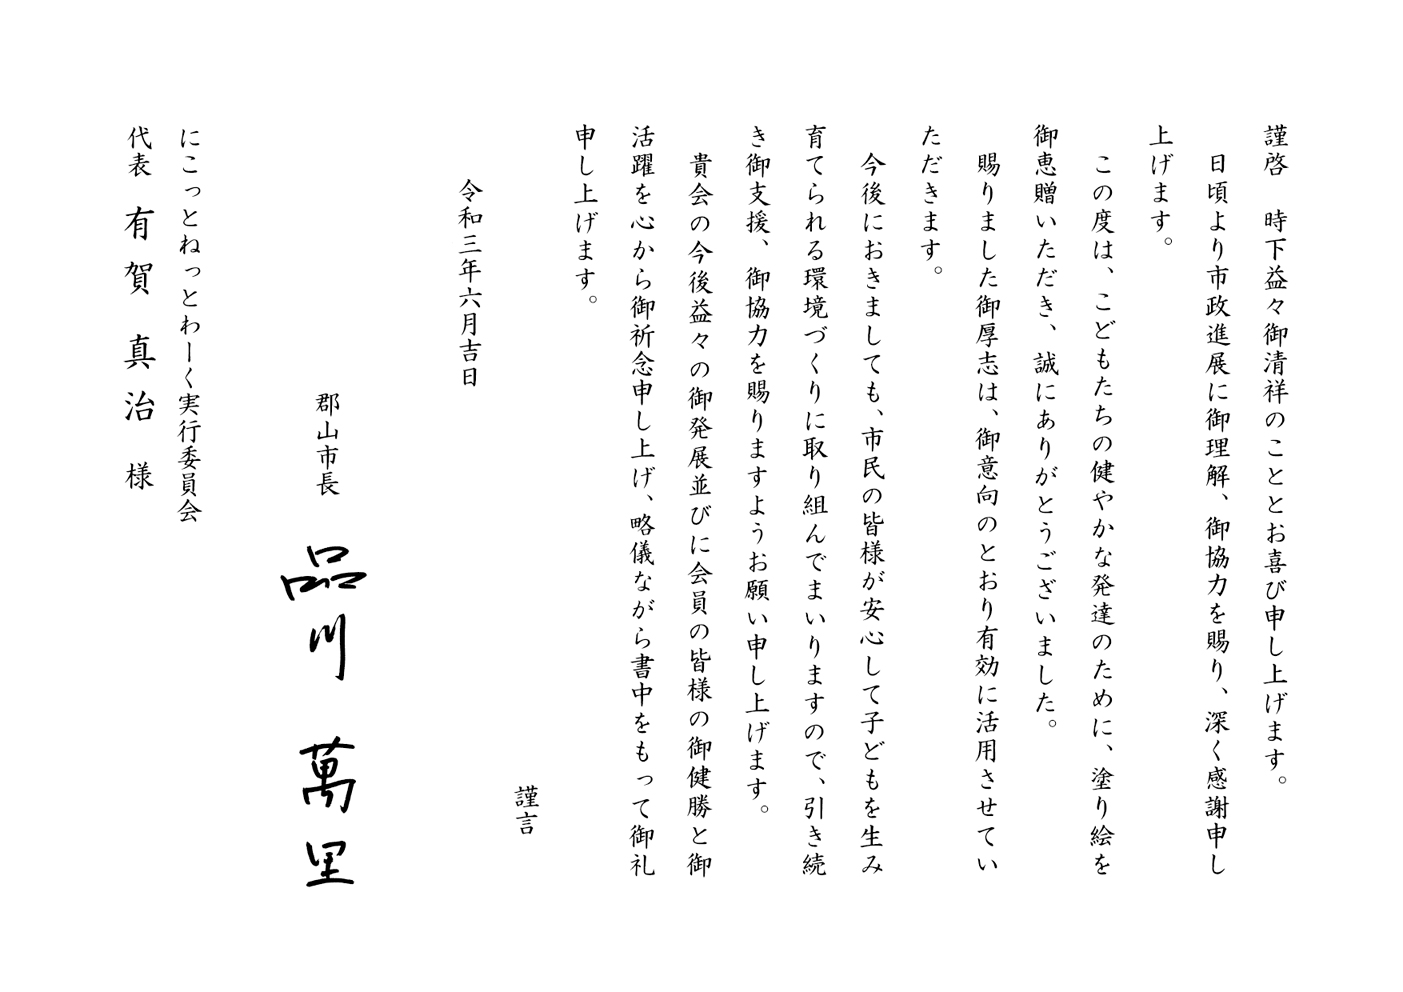 謹啓　時下益々御清祥のこととお喜び申し上げます。
日頃より市政進展に御理解、御協力を賜り、深く感謝申し
上げます。
この度は、こどもたちの健やかな発達のために、塗り絵を
御恵贈いただき、誠にありがとうございました。
賜りました御厚志は、御意向のとおり有効に活用させてい
ただきます。
今後におきましても、市民の皆様が安心して子どもを生み
育てられる環境づくりに取り組んでまいりますので、引き続
き御支援、御協力を賜りますようお願い申し上げます。
貴会の今後益々の御発展並びに会員の皆様の御健勝と御
活躍を心から御祈念申し上げ、略儀ながら書中をもって御礼
申し上げます。
謹言
令和三年六月吉日
郡山市長　品川　萬里
にこっとねっとわーく実行委員会
代表　有賀　真治　様